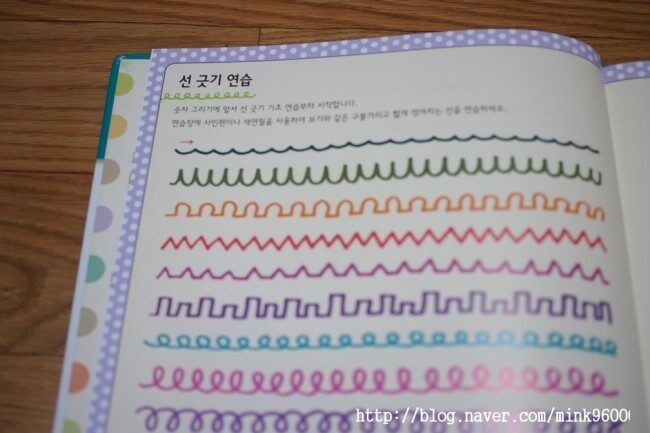 선 긋기 연습
숫자 그리기에 앞서 선 긋기 기초 연습부터 시작합니다.
연습장에 사인펜이나 색연필을 사용하여 보기와 같은 구불거리고 짧게 꺾어지는 선을 연습하세요.
http://blog.naver.com/mink9600